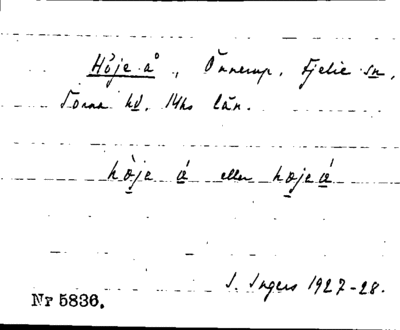 Höje å, Önnerup, Fjelie sn,
Torna hd, Mhs län.
hòje á eller hojeá
I. Ingers 1927-28.
Nr 5836.